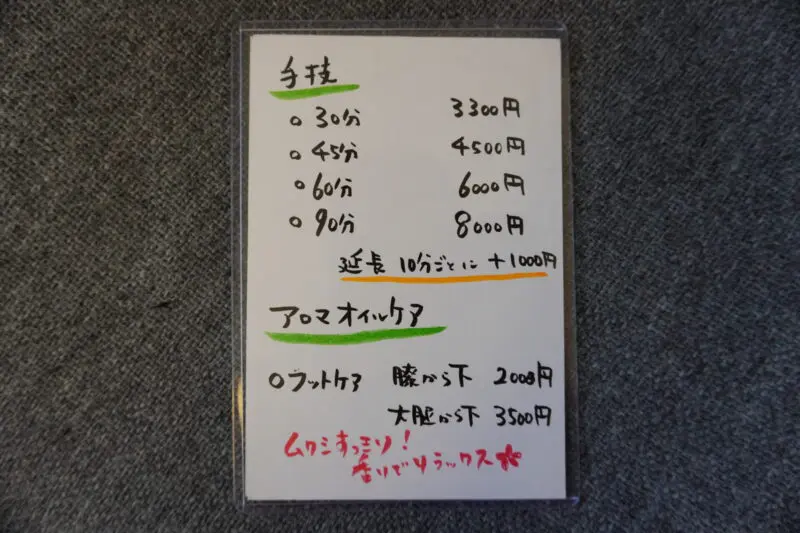 手技
○ 30分 3300円
○ 45分 4500円
○ 60分 6000円
○ 90分 8000円
延長 10分ごとに +1000円
アロマオイルケア
○フットケア 膝から下 2000円
大腿から下 3500円
ムクミすっきり!
香りでリラックス